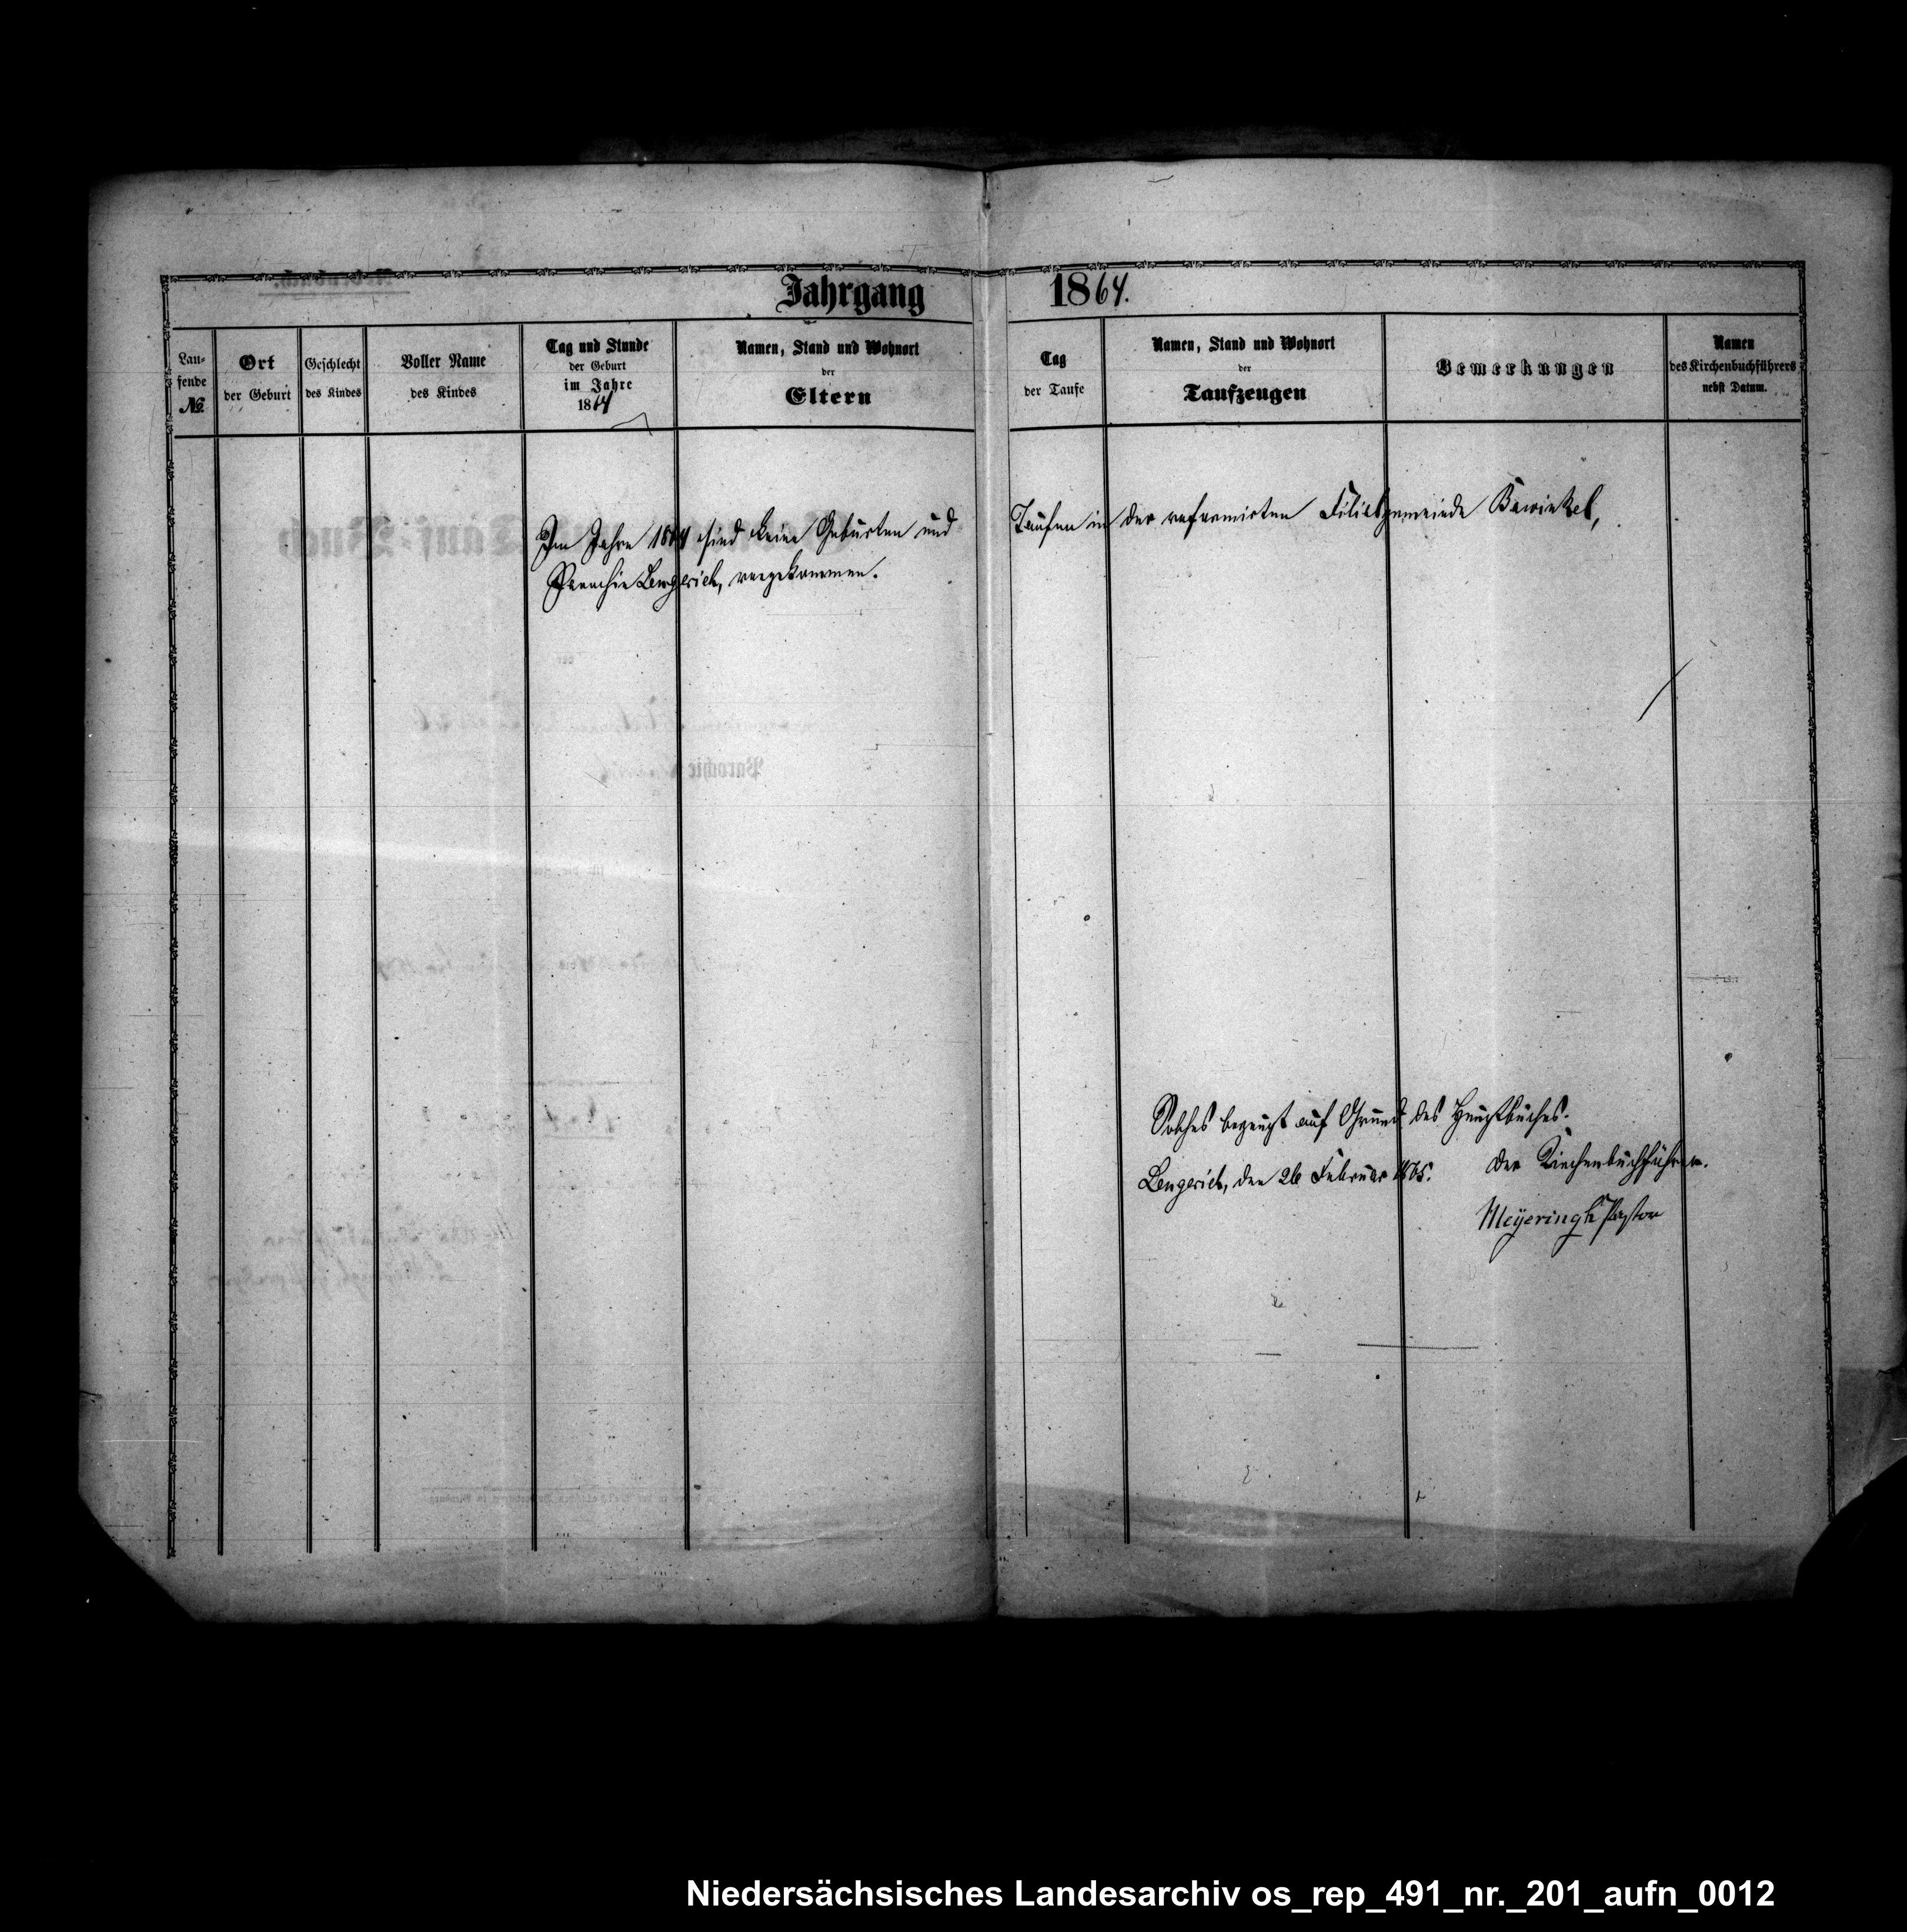 Jahrgang 1864.
Lau-
fende
№
Ort
der Geburt
Geschlecht
des Kindes
Voller Name
des Kindes
Tag und Stunde
der Geburt
im Jahre
1864
Namen, Stand und Wohnort
der
Eltern
Tag
der Taufe
Namen, Stand und Wohnort
der
Taufzeugen
Bemerkungen
Namen
des Kirchenbuchführers
nebst Datum.
Im Jahre 1864 sind keine Geburten und Taufen in der reformirten Filialgemeinde Bawinkel,
Parochie Lengerich, vorgekommen.
Solches bezeugt auf Grund des Hauptbuches.
Lengerich, den 26 Februar 1865. Der Kirchenbuchführer.
Meyeringh Pastor
Niedersächsisches Landesarchiv os_rep_491_nr._201_aufn_0012